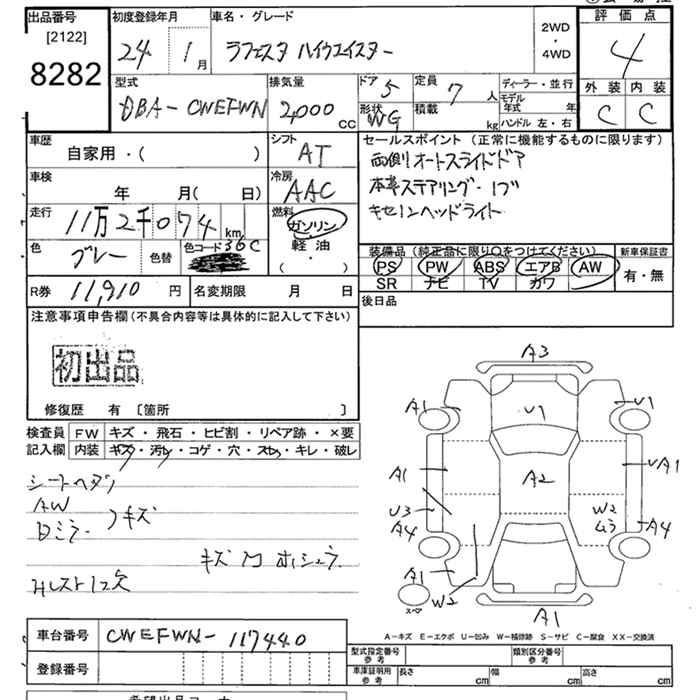 出品番号
[2122]
8282
初度登録年月
24 1 月
車名・グレード
ラフェスタ ハイウェイスター
2WD
・
4WD
評価点
4
外装 内装
C C
型式
DBA-CWEFWN
排気量
2,000 CC
ドア 5
形状 WG
定員 7 人
積載 kg
ディーラー・並行
モデル年式 年
ハンドル 左・右
車歴
自家用・( )
シフト
AT
セールスポイント (正常に機能するものに限ります)
両側オートスライドドア
本革ステアリング・
キセノンヘッドライト
車検
年 月( 日)
冷房
AAC
走行
11万2千074 km
燃料
ガソリン
軽油
( ・ )
色
グレー
色替
色コード 36C
装備品 (純正品に限り○をつけてください)
PS PW ABS エアB AW
SR ナビ TV カワ
新車保証書
有・無
R券 11,910 円
名変期限 月 日
後日品
注意事項申告欄 (不具合内容等は具体的に記入して下さい)
初出品
修復歴 有 [箇所 ]
検査員 記入欄
FW キズ・飛石・ヒビ割・リペア跡・×要
内装 キズ・汚レ・コゲ・穴・スレ・キレ・破レ
シートヘタリ
AW
Dミラー キズ
キズ 凹 ホシュウ
Hレスト1欠
A3
A1 U1 U1
A1 A2 UA1
U3 W2
A4 ムラ A4
A1
W2
スペア
A1
A-キズ E-エクボ U-凹み W-補修跡 S-サビ C-腐食 XX-交換済
車台番号 CWEFWN-117440
登録番号
型式指定番号 参考
類別区分番号 参考
車庫証明用 参考
長さ cm 幅 cm 高さ cm